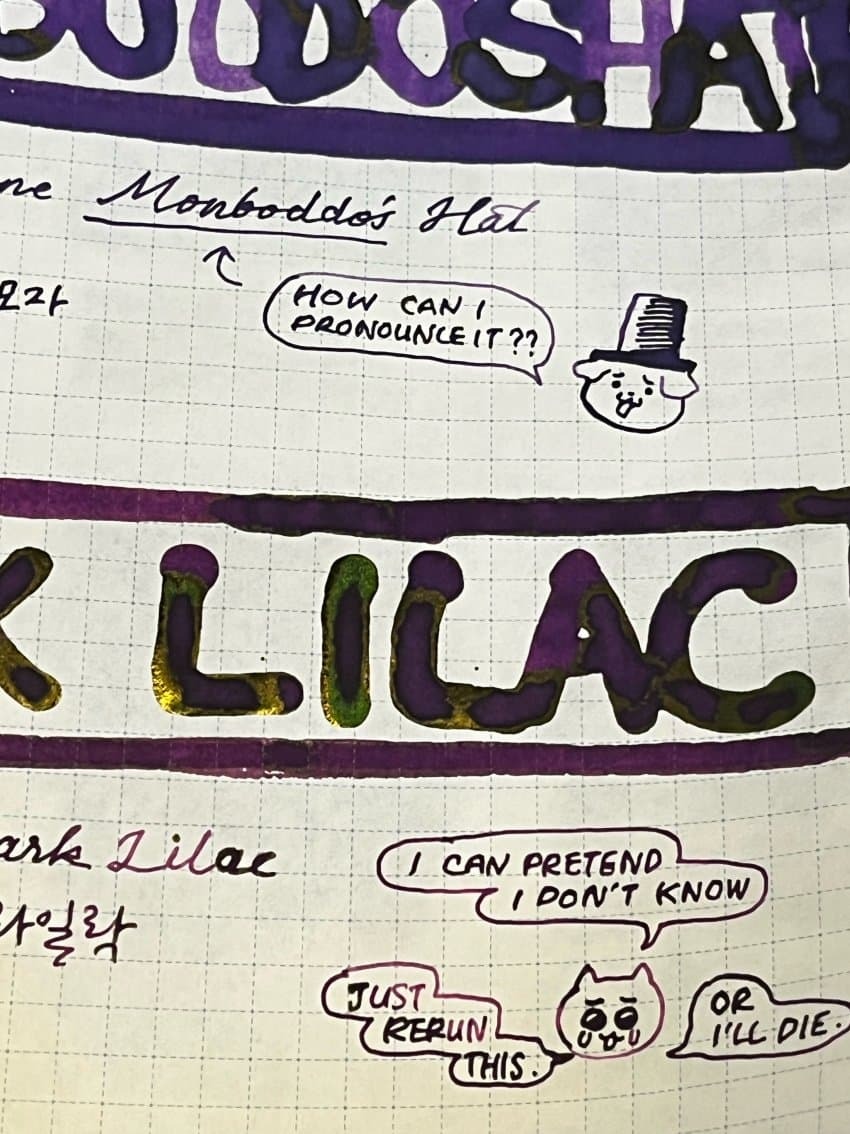 BODDOSHAT
ne Monboddo's Hat
HOW CAN I
PRONOUNCE IT??
K LILAC
ark Lilac
라일락
I CAN PRETEND
I DON'T KNOW
JUST
RERUN
THIS.
OR
I'LL DIE.